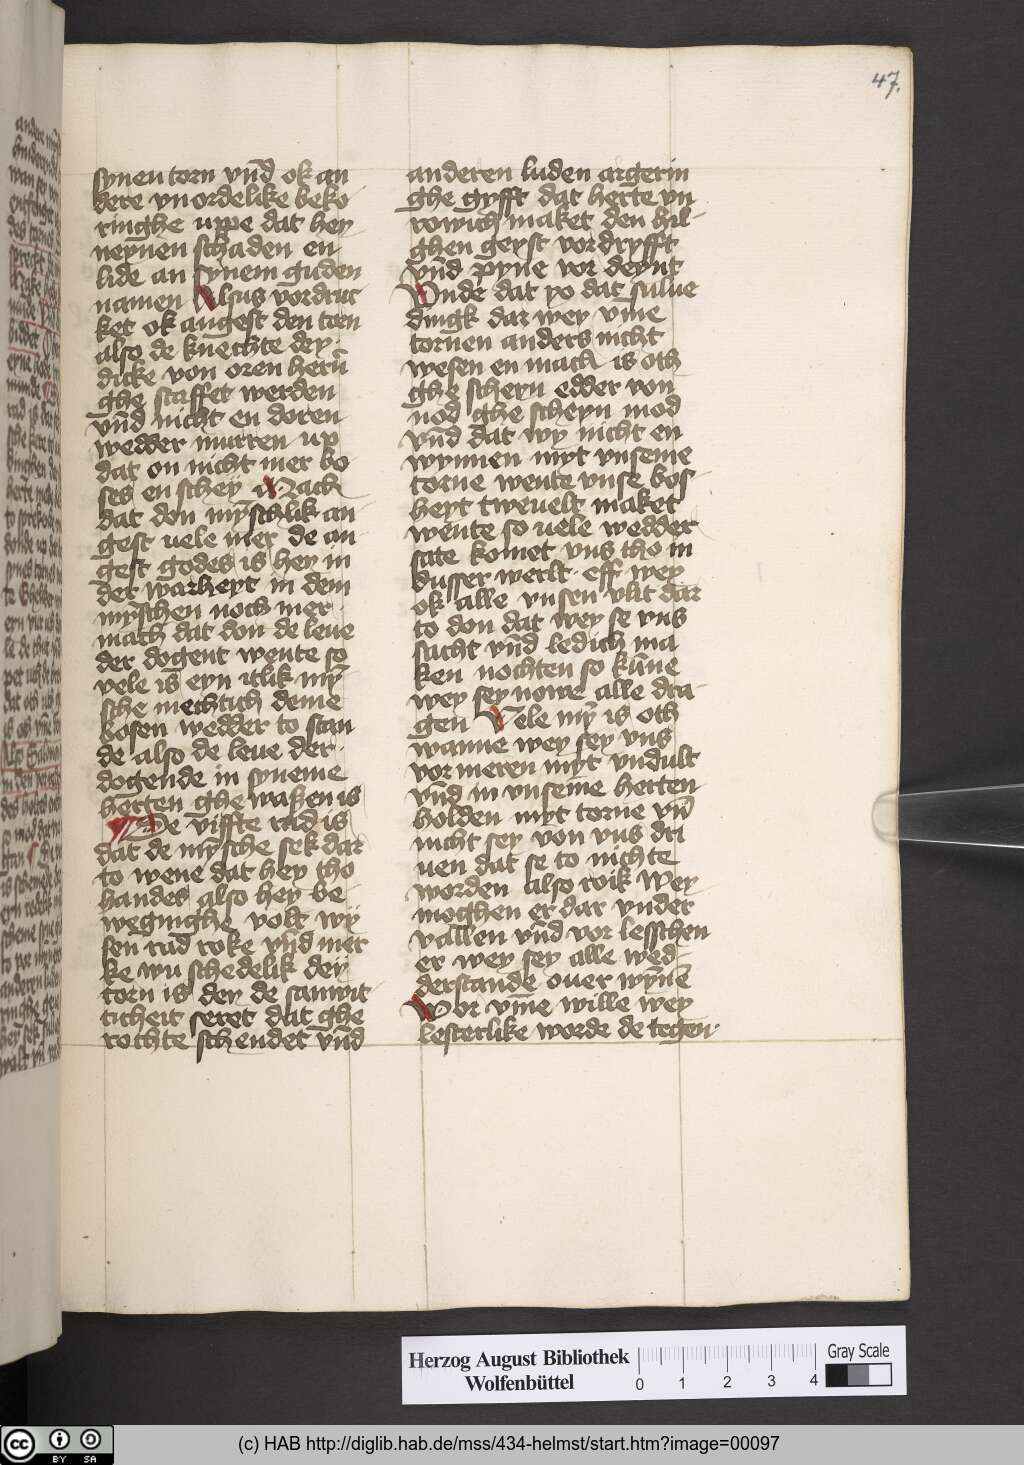 47.
synen torn vn̄d ok an
dere vnordelike beko
ringhe uppe dat hey
neynen schaden en
lide an synem guden
namen Alsus vordruc
ket ok angest den torn
also de knechte dey
dicke von oren herū
ghe straffet werden
vn̄d nicht en doren
wedder murren up
dat on nicht mer bo
ses en schey Nach
dat den mȳschlik an
gest uele mer de an
gest godes is hey in
der warheyt in dem
mȳschen noch mer
mach dat don de leue
der dogent wente so
vele is eyn itlik mȳ
sche mechtich deme
bosen wedder to stan
de also de leue der
dogende in syneme
herten ghe waßen is
De viffte rad is
dat de mȳsche sek dar
to wene dat hey tho
handes also hey be
weginghe volt wy
sen rad roke vn̄d mer
ke wu schedelik dey
torn is dey de samwit
ticheit seret dat ghe
rochte schendet vn̄d
anderen luden argerin
ghe gyfft dat herte vn
rowich maket den hil
ghen geyst vordryfft
vn̄d pyne vor deynt
Vnde dat yo dat sulue
dingk dar wey vme
tornen anders nicht
wesen en mach is oth
ghe scheyn edder von
nod ghe scheyn mod
vn̄d dat wy nicht en
wynnen myt vnseme
torne wente vnse bos
heyt twevelt maket
wente so uele wedder
sate komet vns tho in
dusser werlt eff wey
ok alle vnsen vlit dar
to don dat wey se vns
sacht vn̄d ledich ma
ken nochten so kūne
wey sey nowe alle dra
gen Vele mȳ is oth
wanne wey sey vns
vormeren myt vndult
vn̄d in vnseme herten
holden myt torne vn̄
nicht sey von vns dri
uen dat se to nichte
worden also roik Wey
moghen er dar vnder
vallen vn̄d vor lesschen
er wey sey alle wed
derstande ouer wȳnē
Vor vm̄e wille wey
lesterlike worde de tegen
Herzog August Bibliothek
Wolfenbüttel
0 1 2 3 4
Gray Scale
cc BY SA
(c) HAB http://diglib.hab.de/mss/434-helmst/start.htm?image=00097